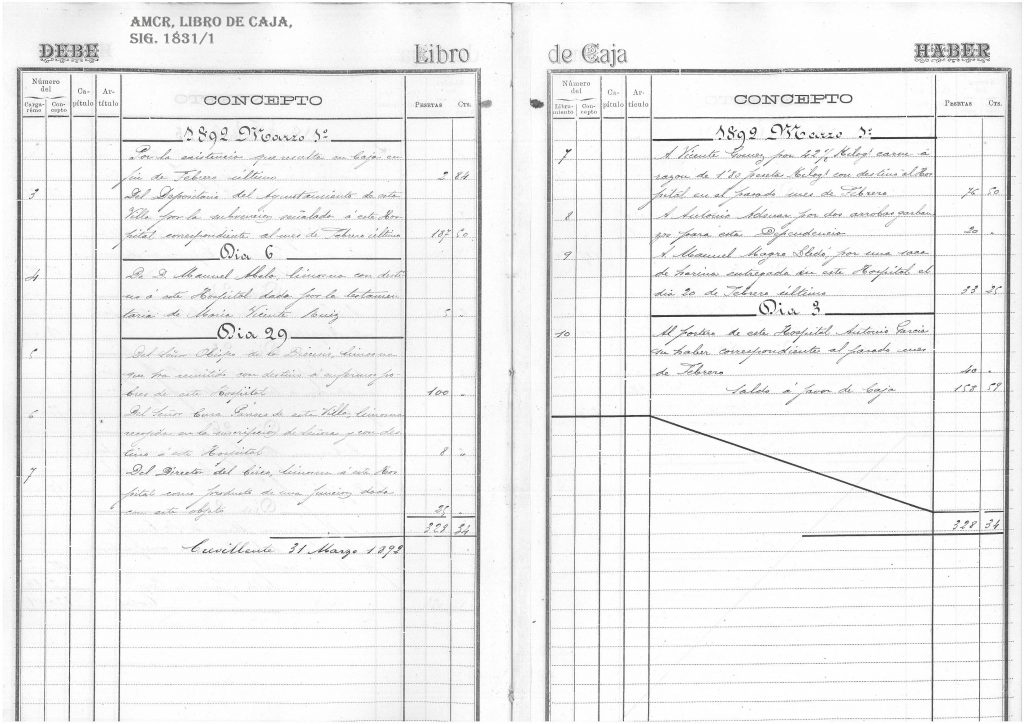 AMCR, LIBRO DE CAJA,
SIG. 1831/1
DEBE
Libro
Número
del
Cargaréme
Concepto
Ca-
pítulo
Ar-
título
CONCEPTO
PESETAS
CTS.
1892 Marzo 1º
Por la existencia que resulta en Caja en
fin de Febrero último 2 84
3 Del Depositario del Ayuntamiento de esta
Villa por la subvención señalada á este Hos-
pital correspondiente al mes de Febrero último 187 50
Dia 6
4 De D. Manuel limosna con desti-
no á este Hospital dada por la testamen-
taria de Maria Vicente Ruiz 5 "
Dia 29
5 Del Señor Obispo de la Diócesis, limosna
que ha remitido con destino á los po-
bres de este Hospital 100 "
6 Del Señor Cura de esta Villa, limosna
recogida en la de y con des-
tino á este Hospital 8 "
7 Del Director del Circo, limosna á este Hos-
pital como producto de una función dada
con este objeto 25 "
328 34
Crevillente 31 Marzo 1892
de Caja
HABER
Número
del
Libra-
miento
Con-
cepto
Ca-
pítulo
Ar-
tículo
CONCEPTO
PESETAS
CTS.
1892 Marzo 1º
7 A Vicente Gomez por 42 ½ Kilogs carne á
razon de 1'80 pesetas Kilogº con destino al Hos-
pital en el pasado mes de Febrero 76 50
8 A Antonio Adsuar por dos arrobas garban-
zos para esta Dependencia 20 "
9 A Manuel Magro Lledó, por una saca
de harina entregada en este Hospital el
dia 20 de Febrero último 33 25
Dia 3
10 Al portero de este Hospital Antonio Garcia
su haber correspondiente al pasado mes
de Febrero 40 "
Saldo á favor de Caja 158 59
328 34